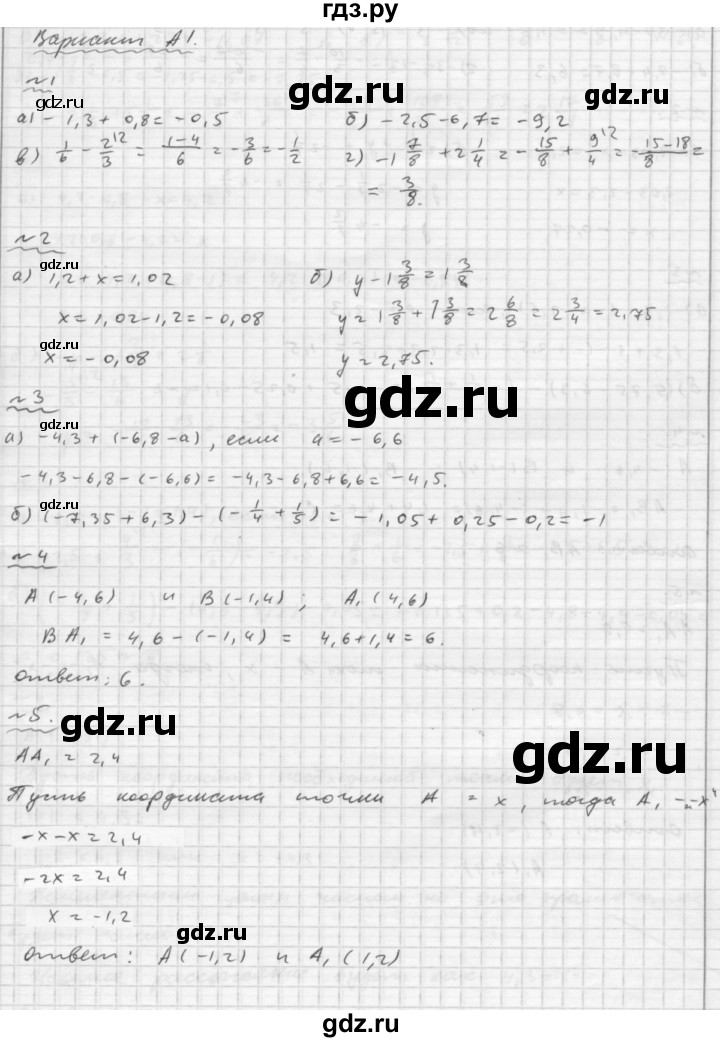 гдз.ру
Вариант А1.
№1
а) - 1,3 + 0,8 = - 0,5 б) - 2,5 - 6,7 = - 9,2
в) 1/6 - 2/3^12 = (1-4)/6 = - 3/6 = - 1/2 г) - 1 7/8 + 2 1/4 = - 15/8 + 9/4^12 = - (15-18)/8 =
= 3/8.
№2
а) 1,2 + x = 1,02 б) y - 1 3/8 = 1 3/8
x = 1,02 - 1,2 = - 0,08 y = 1 3/8 + 1 3/8 = 2 6/8 = 2 3/4 = 2,75
x = - 0,08 y = 2,75.
№3
а) - 4,3 + (-6,8 - a), если a = - 6,6
- 4,3 - 6,8 - (-6,6) = - 4,3 - 6,8 + 6,6 = - 4,5.
б) (-7,35 + 6,3) - (- 1/4 + 1/5) = - 1,05 + 0,25 - 0,2 = - 1
№4
A (-4,6) и B (-1,4) ; A₁ (4,6)
BA₁ = 4,6 - (-1,4) = 4,6 + 1,4 = 6.
ответ: 6.
№5.
AA₁ = 2,4
Пусть координата точки A = x, тогда A₁ - "-x"
-x - x = 2,4
-2x = 2,4
x = -1,2
ответ: A (-1,2) и A₁ (1,2)
gdz.ru
gdz.ru
gdz.ru
gdz.ru
gdz.ru
gdz.ru
gdz.ru
gdz.ru
gdz.ru
gdz.ru
gdz.ru
gdz.ru